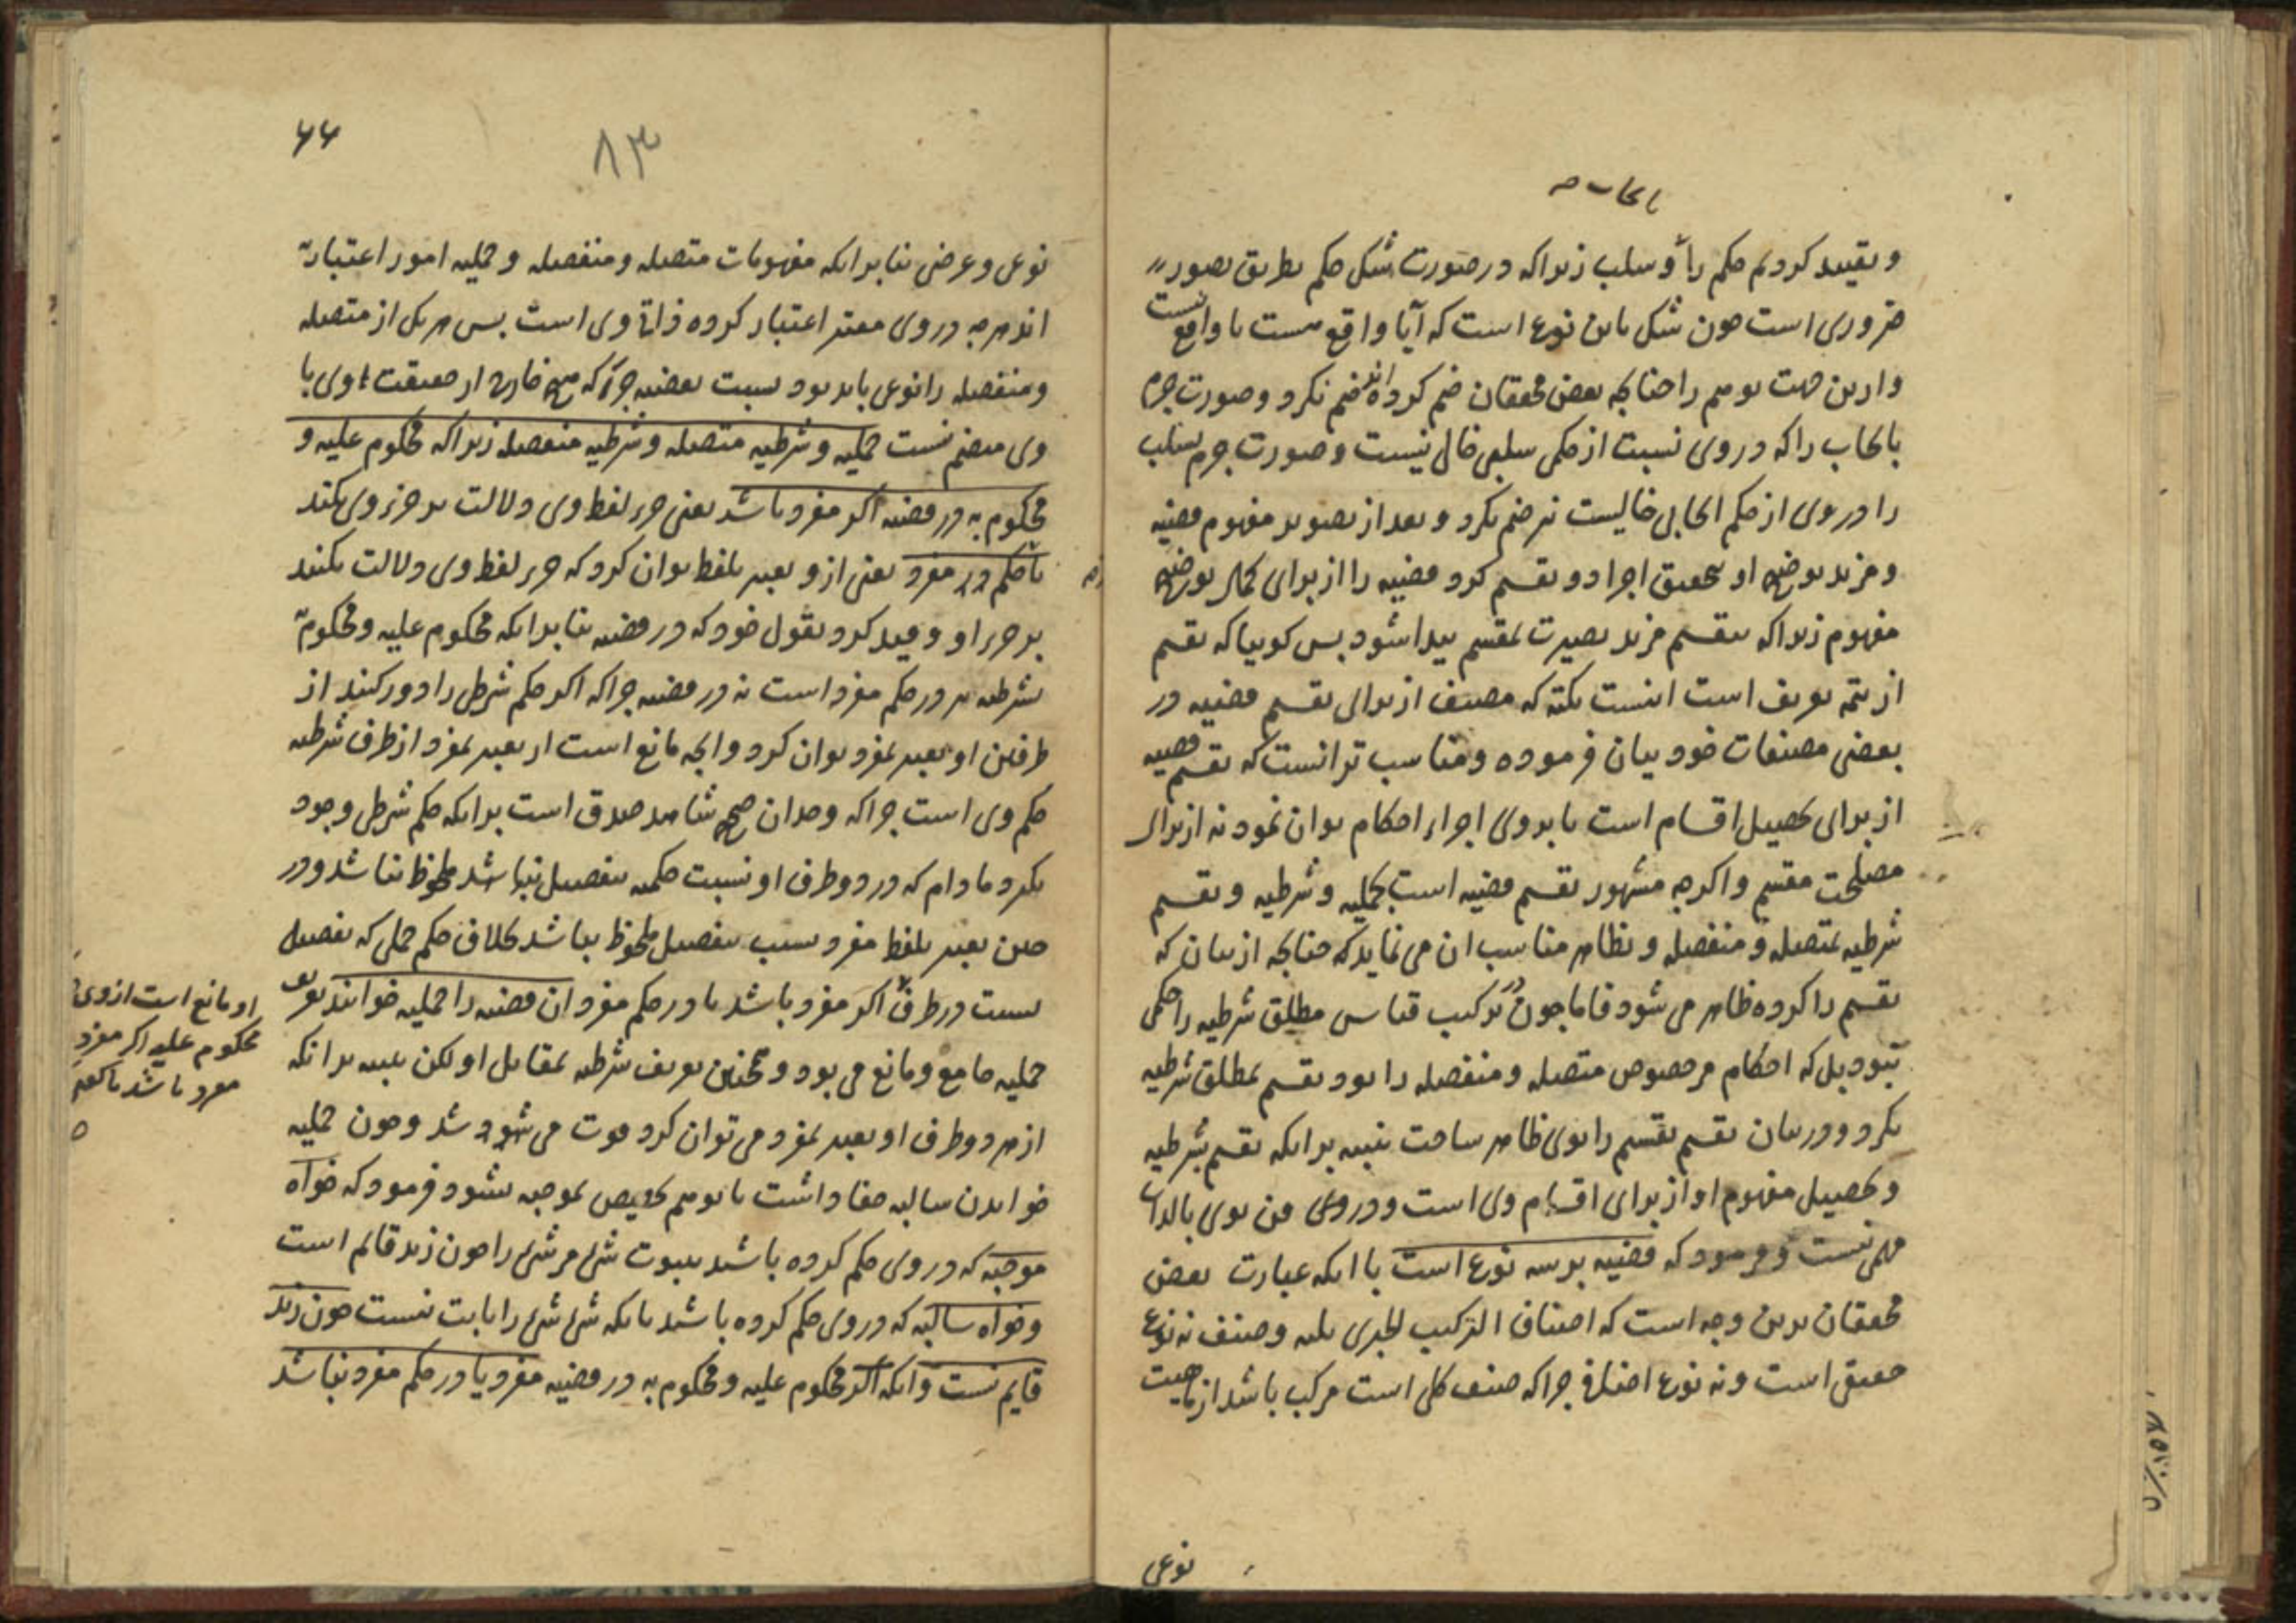 بایجاب صح
و تقیید کردیم حکم را و سلب زیرا که در صورت شک حکم بطریق تصور
ضروری است چون شک باین نوع است که آیا واقع هست یا واقع نیست
و ازین جهت توهم را چنانچه بعضی محققان ضم کرده‌اند ضم نکرد و صورت جزم
بایجاب را که در وی نسبت از حکمی سلبی خالی نیست و صورت جزم بسلب
را در وی از حکم ایجابی خالیست نیز ضم نکرد و بعد از تصویر مفهوم قضیه
و مزید توضیح او تحقیق اجزا و تقسیم کرد قضیه را از برای کمال توضیح
مفهوم زیرا که بتقسیم مزید بصیرت بمقسم پیدا شود پس کوییا که تقسیم
از تتمه تعریف است اینست نکته که مصنف از برای تقسیم قضیه در
بعضی مصنفات خود بیان فرموده و مناسب تر انست که تقسیم قضیه
از برای تحصیل اقسام است تا بروی اجراء احکام توان نمود نه از برای
مصلحت مقسم و اکرچه مشهور تقسیم قضیه است بحملیه و شرطیه و تقسیم
شرطیه بمتصله و منفصله و بظاهر مناسب ان می نماید که چنانچه از بیان که
تقسیم را کرده ظاهر می شود فاما چون در ترکیب قیاس مطلق شرطیه را حکمی
نبود بل که احکام مر خصوص متصله و منفصله را بود تقسیم بمطلق شرطیه
نکرد و در بیان تقسیم تقسیم را بوی ظاهر ساخت تنبیه برانکه تقسیم شرطیه
و تحصیل مفهوم او از برای اقسام وی است و در وی فن بوی بالذات
مهمی نیست و فرمود که قضیه بر سه نوع است با انکه عبارت بعضی
محققان برین وجه است که اصناف الترکیب الخبری ثلثه و صنف نه نوع
حقیقی است و نه نوع اضافی چرا که صنف کلی است مرکب باشد از ماهیت
نوعی
۶۶
۸۳
نوعی و عرضی بنا برانکه مفهومات متصله و منفصله و حملیه امور اعتباریه
اند هر چه در وی معتبر اعتبار کرده ذاتی وی است پس هر یکی از متصله
و منفصله را نوعی باید بود نسبت بقضیه چرا که هیچ خارج از حقیقت وی با
وی منضم نیست حملیه و شرطیه متصله و شرطیه منفصله زیرا که محکوم علیه و
محکوم به در قضیه اکر مفرد باشد یعنی جزء لفظ وی دلالت بر جزء وی نکند
یا در حکم مفرد یعنی از و تعبیر بلفظ توان کرد که جزء لفظ وی دلالت نکند
بر جزء او و قید کرد بقول خود که در قضیه بنا برانکه محکوم علیه و محکوم به
بشرطیه نیز در حکم مفرد است نه در قضیه چرا که اکر حکم شرطی را دور کنند از
طرفین او تعبیر بمفرد توان کرد و انچه مانع است از تعبیر بمفرد از طرف شرطیه
حکم وی است چرا که وجدان صحیح شاهد صدق است برانکه حکم شرطی وجود
نکیرد مادام که در دو طرف او نسبت حکمیه بتفصیل نباشد ملحوظ نباشد و در
حین تعبیر بلفظ مفرد نسبت بتفصیل ملحوظ نباشد بخلاف حکم حملی که تفصیل
نسبت در طرف اکر مفرد باشد یا در حکم مفرد ان قضیه را حملیه خوانند تعریف
حملیه جامع و مانع می بود و همچنین تعریف شرطیه بمقابل او لکن تنبیه برانکه
از هر دو طرف او تعبیر بمفرد می توان کرد فوت می شد و چون حملیه
خواندن سالبه خفا داشت تا توهم تخصیص بموجبه نشود فرمود که خواه
موجبه که در وی حکم کرده باشد بثبوت شئ مر شئ را چون زید قایم است
و خواه سالبه که در وی حکم کرده باشد بانکه شئ شئ را ثابت نیست چون زید
قایم نیست و انکه اکر محکوم علیه و محکوم به در قضیه مفرد یا در حکم مفرد نباشد
او مانع است از وی
محکوم علیه اکر مفرد
مفرد باشد